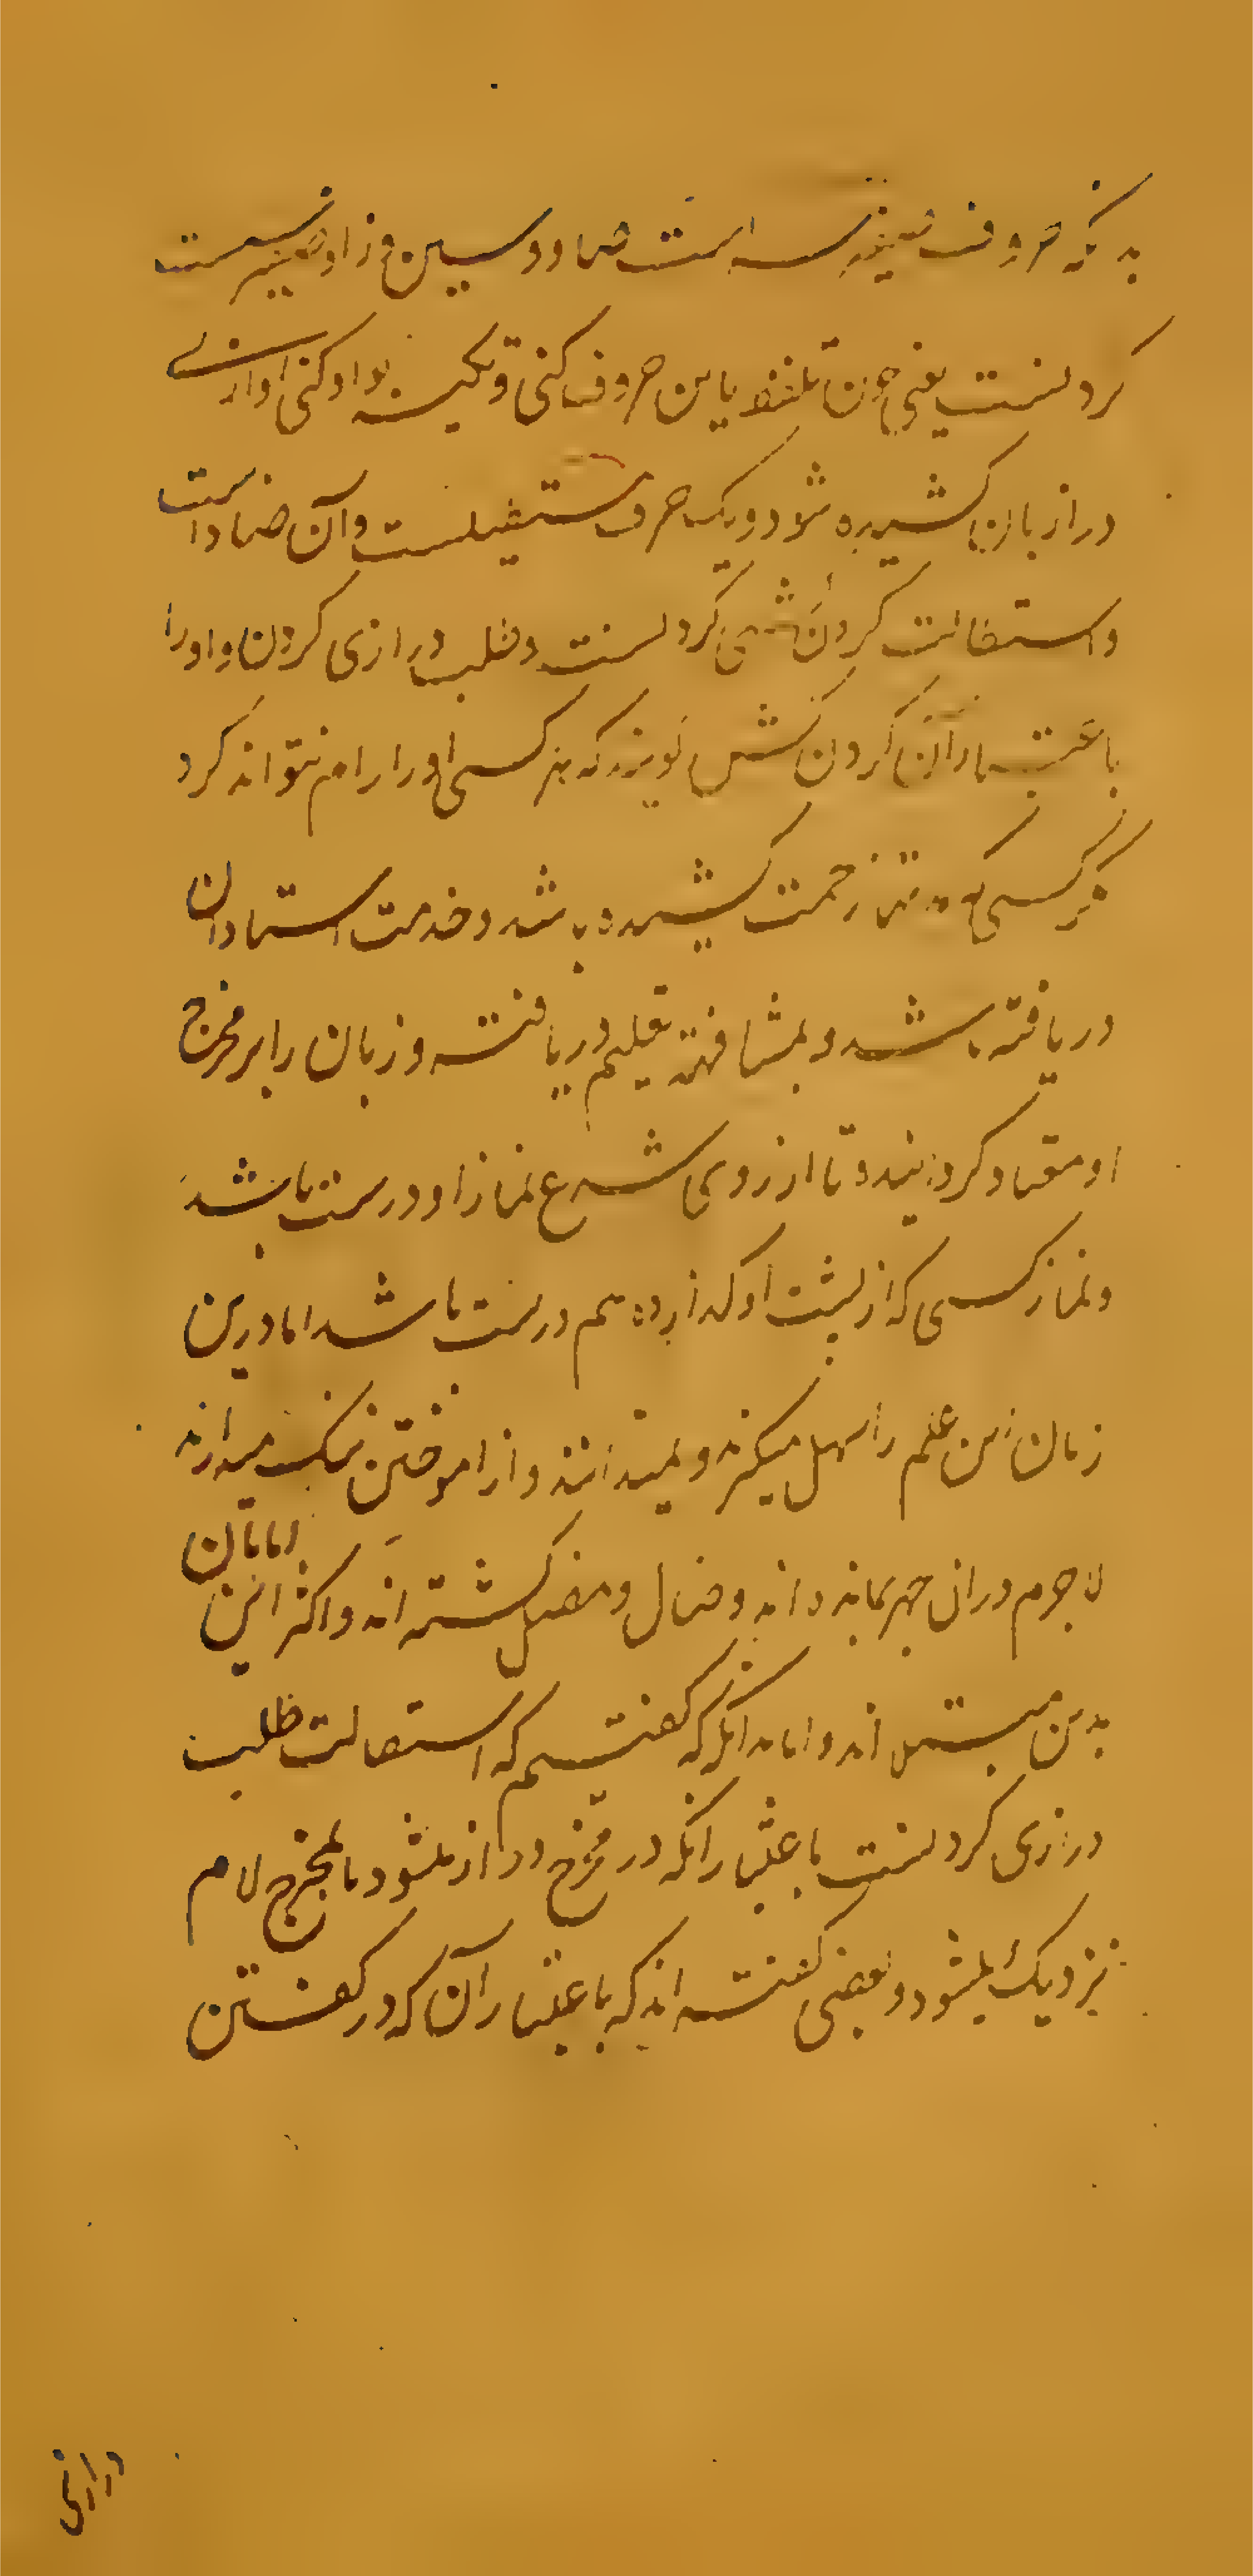 بدانکه حروف صفیر سه است صاد و سین و زا و صفیر شست
کردنست یعنی چون تلفظ باین حروف کنی و تکیه بر او کنی اوازی
دراز بان کشیده شود و یک حرف مستطیلست و آن ضاد است
و استطالت کردن کردنست و طلب درازی کردن و او را
باعتبار آن کردن کش گویند که هر کسی او را رام نتواند کرد
مگر کسی که زحمت کشیده باشد و خدمت استادان
دریافته باشد و بمشافهه تعلیم دریافته و زبان را بر مخرج
او معتاد کردانیده تا از روی شرع نماز او درست باشد
و نماز کسی که از پشت او گذارده هم درست باشد اما درین
زمان این علم را سهل میگیرند و نمیدانند و از اموختن ننگ میدارند
لاجرم در ان جهر بمانده اند و ضال و مضل گشته اند و اکثر این امامان
بدین مبتلی اند و اما بدانکه گفتیم که استطالت طلب
درازی کردنست باعتبار انکه در مخرج دراز میشود تا بمخرج لام
نزدیک میشود و بعضی گفته اند که باعتبار آن که در گفتن
درازی